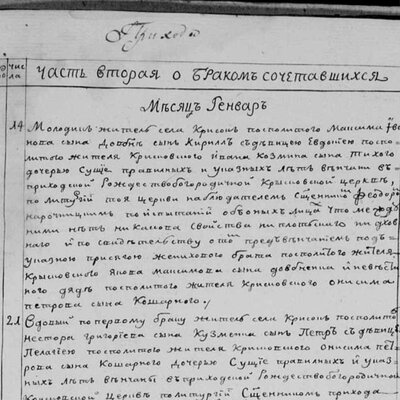 Приходы
чис
ла
часть вторая о бракомъ сочетавшихся
Мѣсяцъ Генварь
14 Молодикъ житель села Крисокъ посполитого Максима Iва
нова сына Довбнѣ сынъ Кириллъ съдѣвицею Евдокiею поспо
литого жителя Крисковского Iвана Козлина сына Тихого
дочерью Сущiе правилныхъ и указныхъ лѣтъ вѣнчаны въ
приходской Рождествобогородичной Крысковской церквѣ
по литургiи тоя церкви наблюдателемъ Сщенникомъ Феодоро
нарочицкимъ по испытанiи обоихъ лицъ что между
ними нѣтъ никакова свойства ни плотского ни духов
наго и по свидѣтельству о томъ предъ вѣнчанiемъ подъ
указною присягою женихового брата посполитого жителя
Крысковского Якова Максимова сына довбненка и невѣсти
ного дядѣ посполитого жителя Крисковского онисима
петрова сына Кошарного
21 Вдовый по первому браку житель села Крисокъ посполито
нестора григорiева сына Кузменка сынъ Петръ съ дѣвицею
Пелагiею посполитого жителя Крисковского онисима пет
рова сына Кошарного дочерью Сущiе правилныхъ и указ
ныхъ лѣтъ вѣнчаны въ приходской Рождествобогородичной
Крысковской Церквѣ по литургiи Сщенникомъ прихода